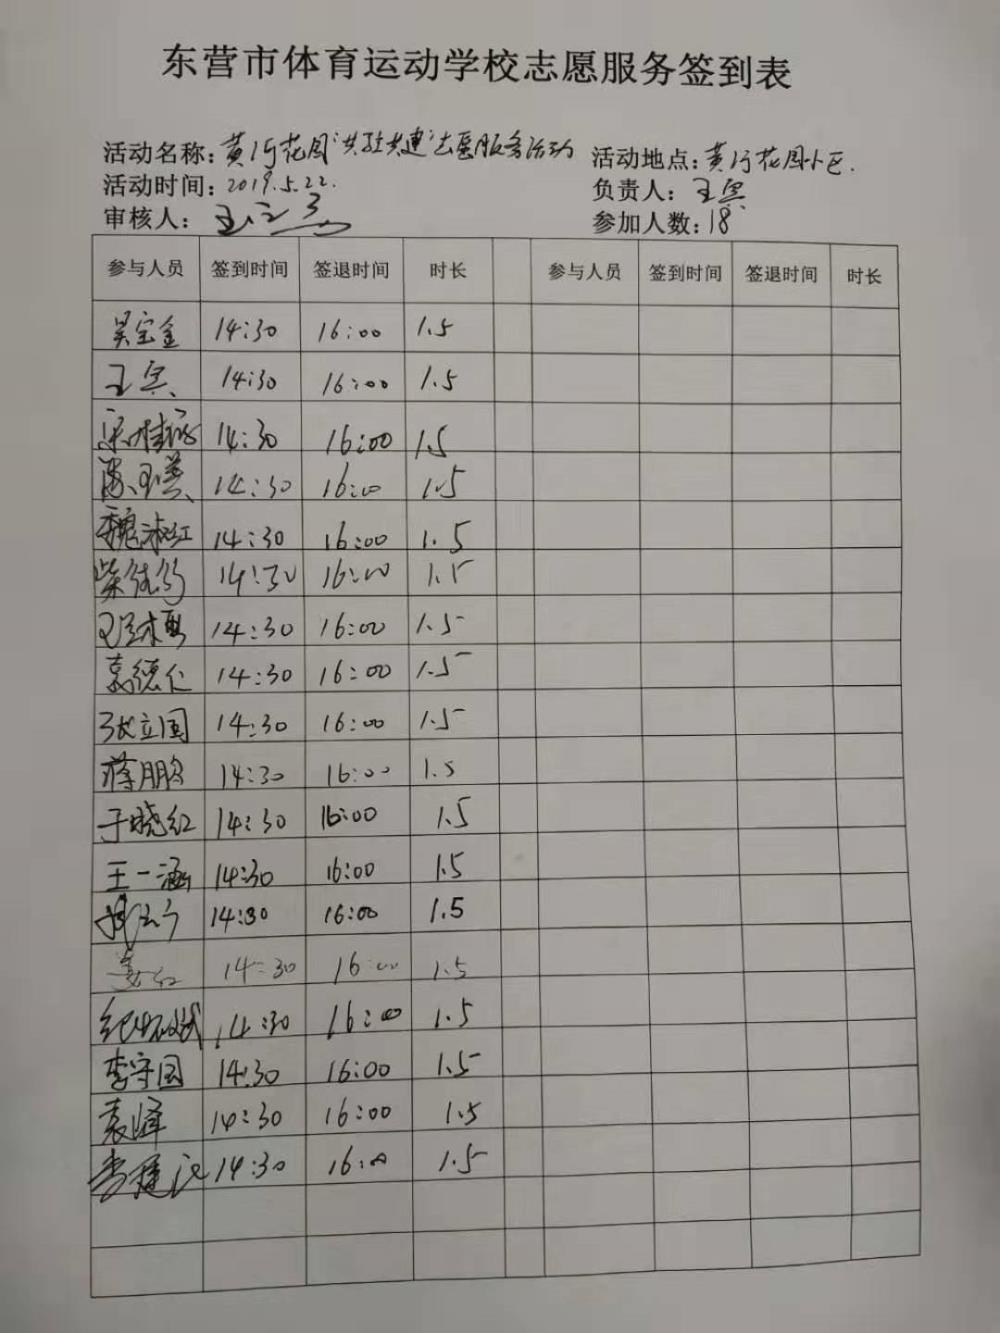 东营市体育运动学校志愿服务签到表
活动名称：黄河花园"共驻共建"志愿服务活动 活动地点：黄河花园小区.
活动时间：2019.5.22. 负责人：
审核人： 参加人数：18
参与人员 签到时间 签退时间 时长 参与人员 签到时间 签退时间 时长
吴宝金 14:30 16:00 1.5
14:30 16:00 1.5
14:30 16:00 1.5
14:30 16:00 1.5
魏淑红 14:30 16:00 1.5
14:30 16:00 1.5
14:30 16:00 1.5
德仁 14:30 16:00 1.5
张立国 14:30 16:00 1.5
蒋朋 14:30 16:00 1.5
于晓红 14:30 16:00 1.5
王一涵 14:30 16:00 1.5
14:30 16:00 1.5
姜红 14:30 16:00 1.5
14:30 16:00 1.5
李守国 14:30 16:00 1.5
袁峰 14:30 16:00 1.5
14:30 16:00 1.5